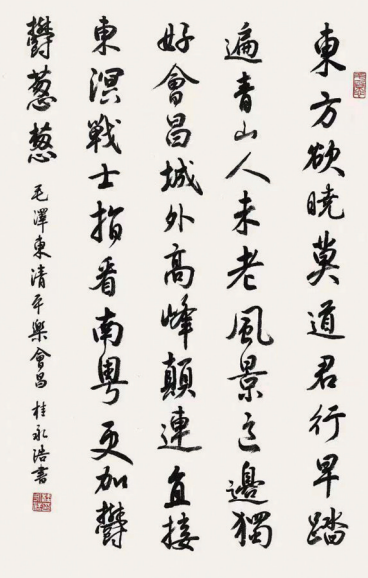 東方欲曉莫道君行早踏
遍青山人未老風景這邊獨
好會昌城外高峰顛連直接
東溟戰士指看南粵更加鬱
鬱蔥蔥
毛澤東清平樂會昌 桂永浩書